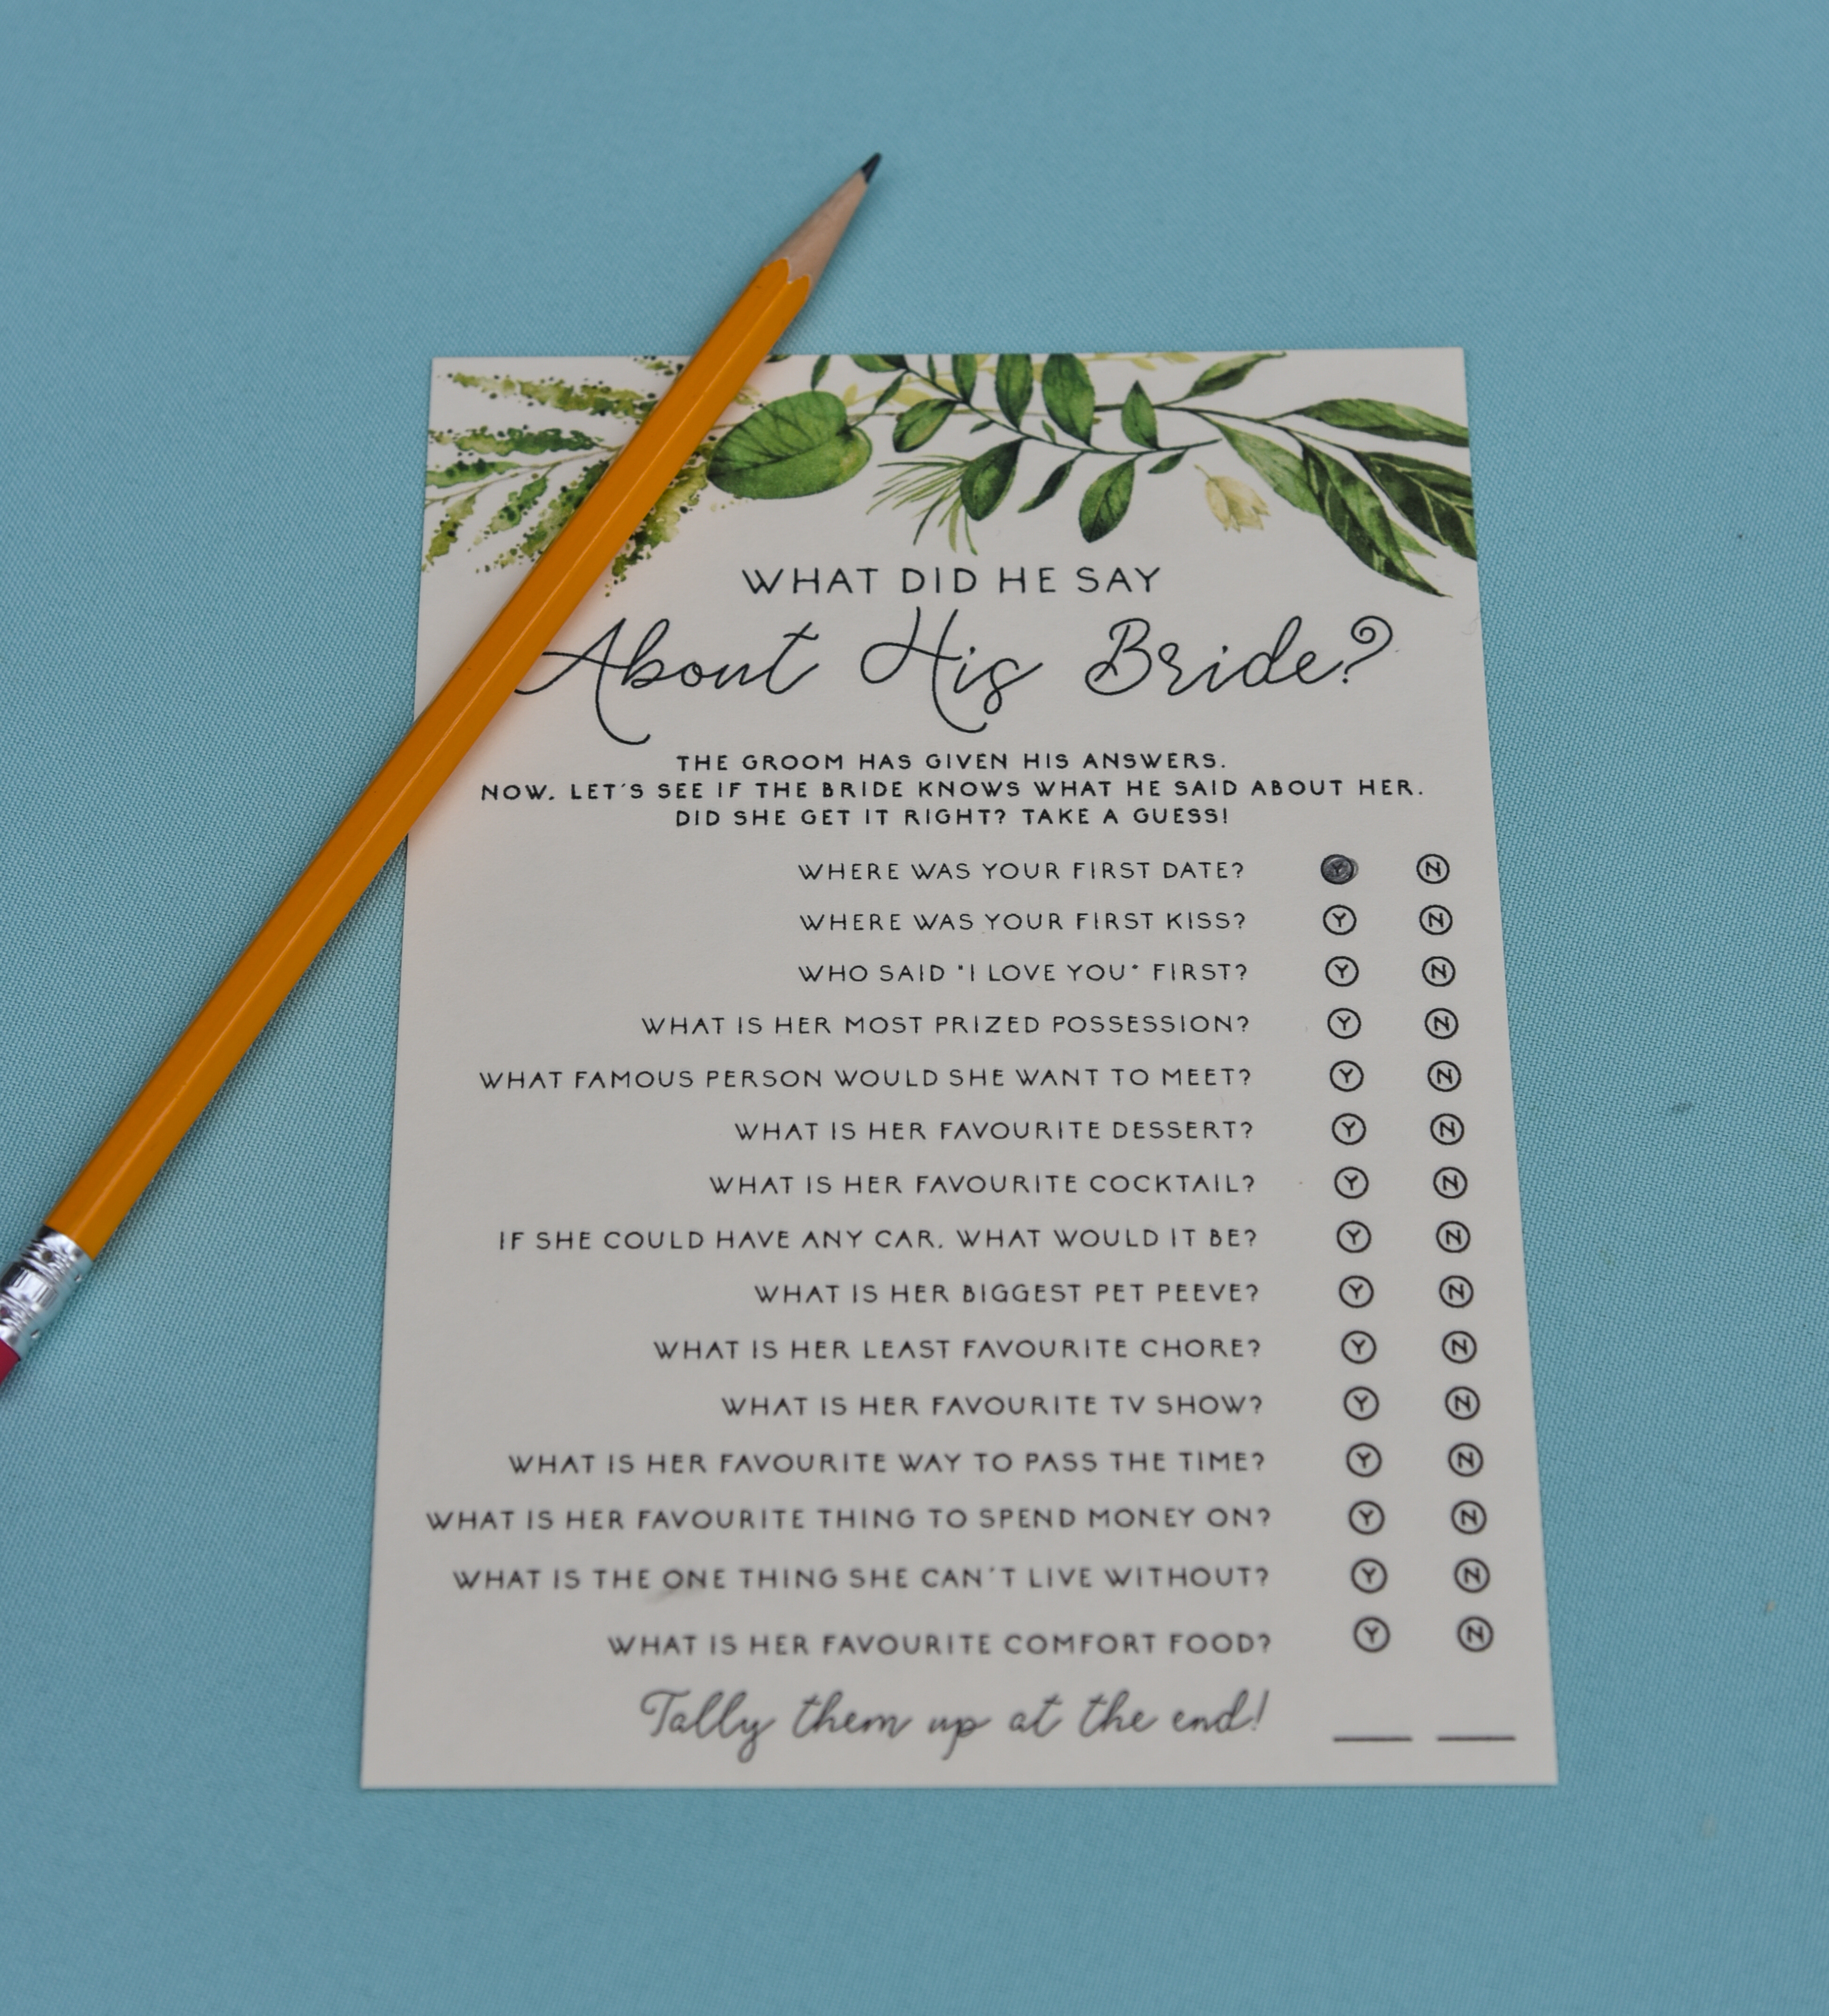 WHAT DID HE SAY
About His Bride?
THE GROOM HAS GIVEN HIS ANSWERS.
NOW, LET'S SEE IF THE BRIDE KNOWS WHAT HE SAID ABOUT HER.
DID SHE GET IT RIGHT? TAKE A GUESS!
WHERE WAS YOUR FIRST DATE? Y N
WHERE WAS YOUR FIRST KISS? Y N
WHO SAID "I LOVE YOU" FIRST? Y N
WHAT IS HER MOST PRIZED POSSESSION? Y N
WHAT FAMOUS PERSON WOULD SHE WANT TO MEET? Y N
WHAT IS HER FAVOURITE DESSERT? Y N
WHAT IS HER FAVOURITE COCKTAIL? Y N
IF SHE COULD HAVE ANY CAR, WHAT WOULD IT BE? Y N
WHAT IS HER BIGGEST PET PEEVE? Y N
WHAT IS HER LEAST FAVOURITE CHORE? Y N
WHAT IS HER FAVOURITE TV SHOW? Y N
WHAT IS HER FAVOURITE WAY TO PASS THE TIME? Y N
WHAT IS HER FAVOURITE THING TO SPEND MONEY ON? Y N
WHAT IS THE ONE THING SHE CAN'T LIVE WITHOUT? Y N
WHAT IS HER FAVOURITE COMFORT FOOD? Y N
Tally them up at the end!